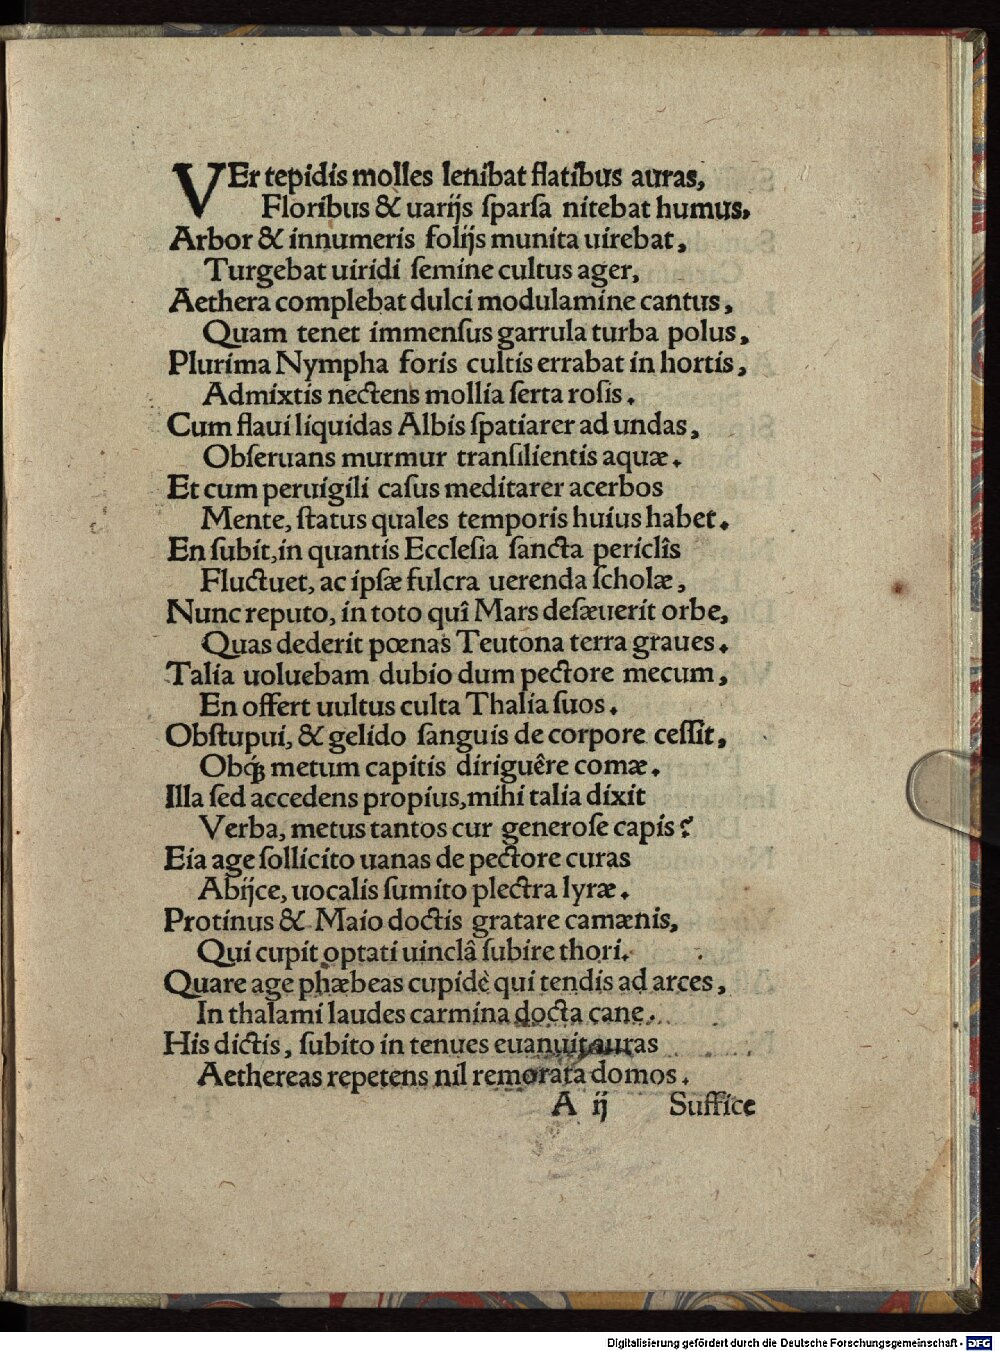 VEr tepidis molles lenibat flatibus auras,
Floribus & uarijs ſparſa nitebat humus,
Arbor & innumeris folijs munita uirebat,
Turgebat uiridi ſemine cultus ager,
Aethera complebat dulci modulamine cantus,
Quam tenet immenſus garrula turba polus,
Plurima Nympha foris cultis errabat in hortis,
Admixtis nectens mollia ſerta roſis.
Cum flaui liquidas Albis ſpatiarer ad undas,
Obſeruans murmur tranſilientis aquæ.
Et cum peruigili caſus meditarer acerbos
Mente, ſtatus quales temporis huius habet.
En ſubit, in quantis Eccleſia ſancta periclîs
Fluctuet, ac ipſæ fulcra uerenda ſcholæ,
Nunc reputo, in toto quî Mars deſæuerit orbe,
Quas dederit pœnas Teutona terra graues.
Talia uoluebam dubio dum pectore mecum,
En offert uultus culta Thalia ſuos.
Obſtupui, & gelido ſanguis de corpore ceſſit,
Obꝗꝫ metum capitis diriguêre comæ.
Illa ſed accedens propius, mihi talia dixit
Verba, metus tantos cur generoſe capis?
Eia age ſollicito uanas de pectore curas
Abijce, uocalis ſumito plectra lyræ.
Protinus & Maio doctis gratare camænis,
Qui cupit optati uinclâ ſubire thori.
Quare age phæbeas cupidè qui tendis ad arces,
In thalami laudes carmina docta cane.
His dictis, ſubito in tenues euanuit auras
Aethereas repetens nil remorata domos.
A ij Suffice
Digitalisierung gefördert durch die Deutsche Forschungsgemeinschaft - DFG